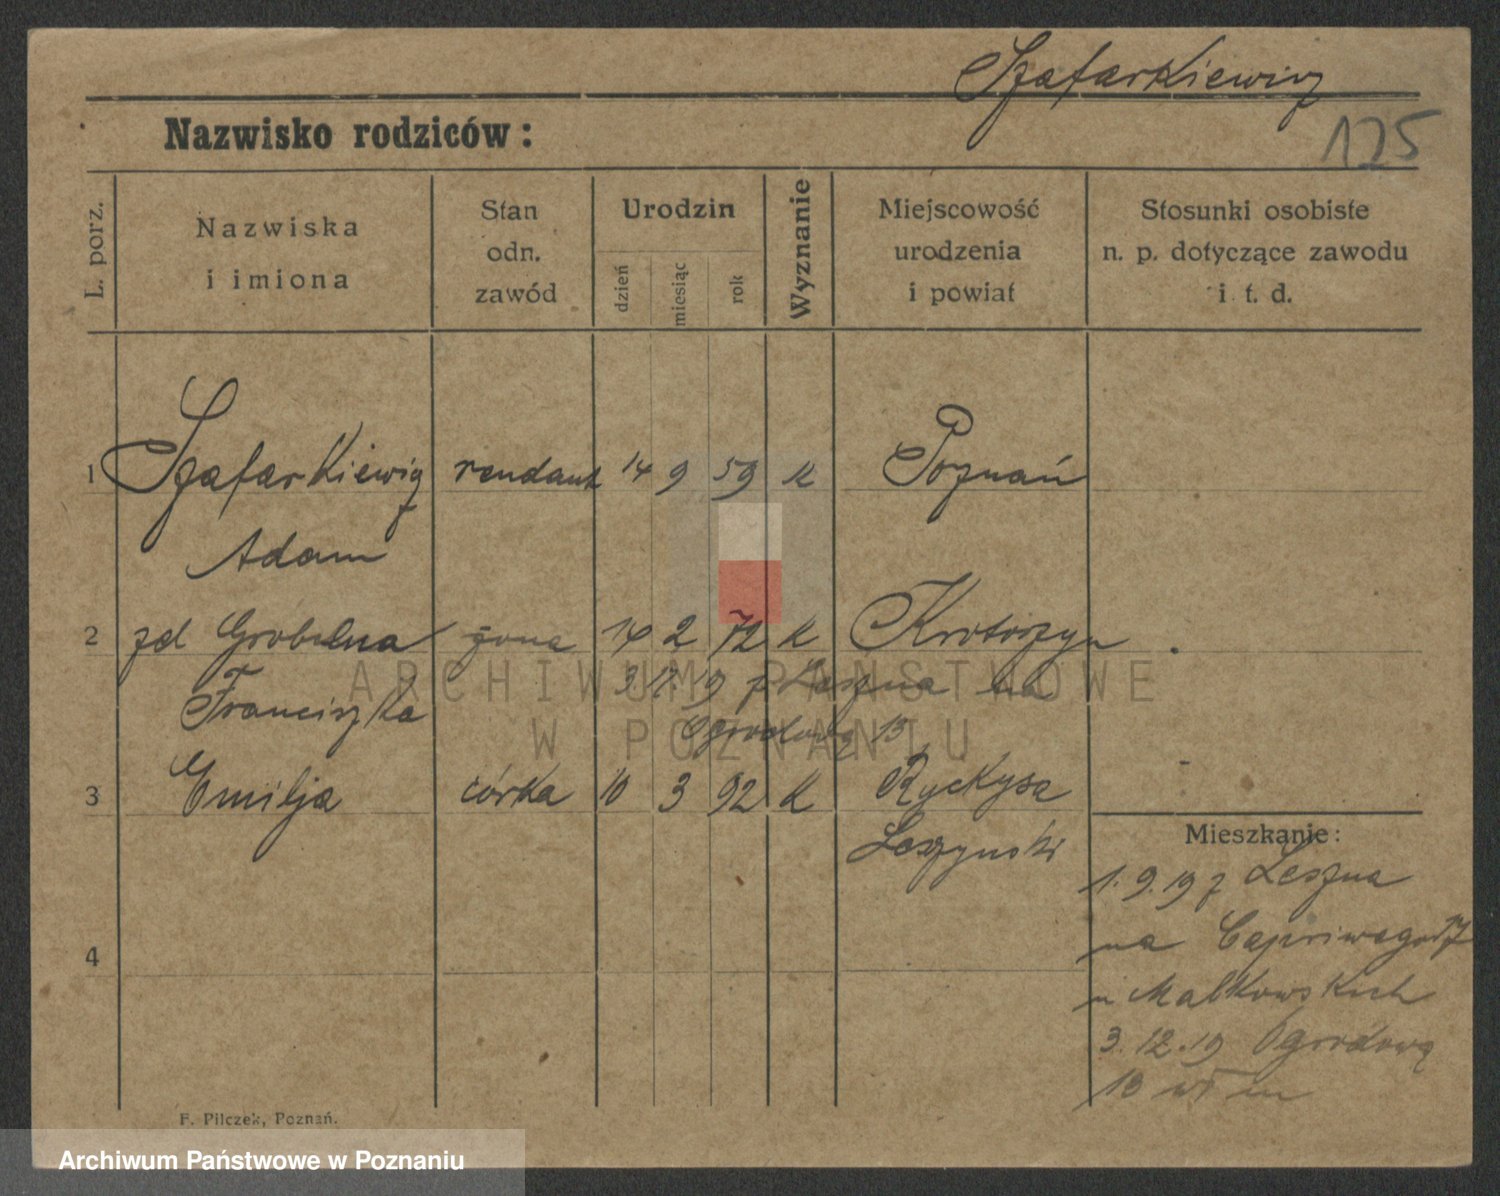 Szafarkiewicz
125
Nazwisko rodziców:
L. porz.
Nazwiska
i imiona
Stan
odn.
zawód
Urodzin
dzień
miesiąc
rok
Wyznanie
Miejscowość
urodzenia
i powiat
Stosunki osobiste
n. p. dotyczące zawodu
i. t. d.
1 Szafarkiewicz rendant 14 9 59 k Poznań
Adam
2 zd Grobelna żona 14 2 72 k Krotoszyn
3.12.19 z Leszna na
Franciszka
Ogrodową 13
3 Emilja córka 10 3 92 k Ryckysa
Leszynski
4
Mieszkanie:
1.9.19 z Leszna
na
u Malkowskich
3.12.19 Ogrodową
13
F. Pilczek, Poznań.
ARCHIWUM PAŃSTWOWE
W POZNANIU
Archiwum Państwowe w Poznaniu